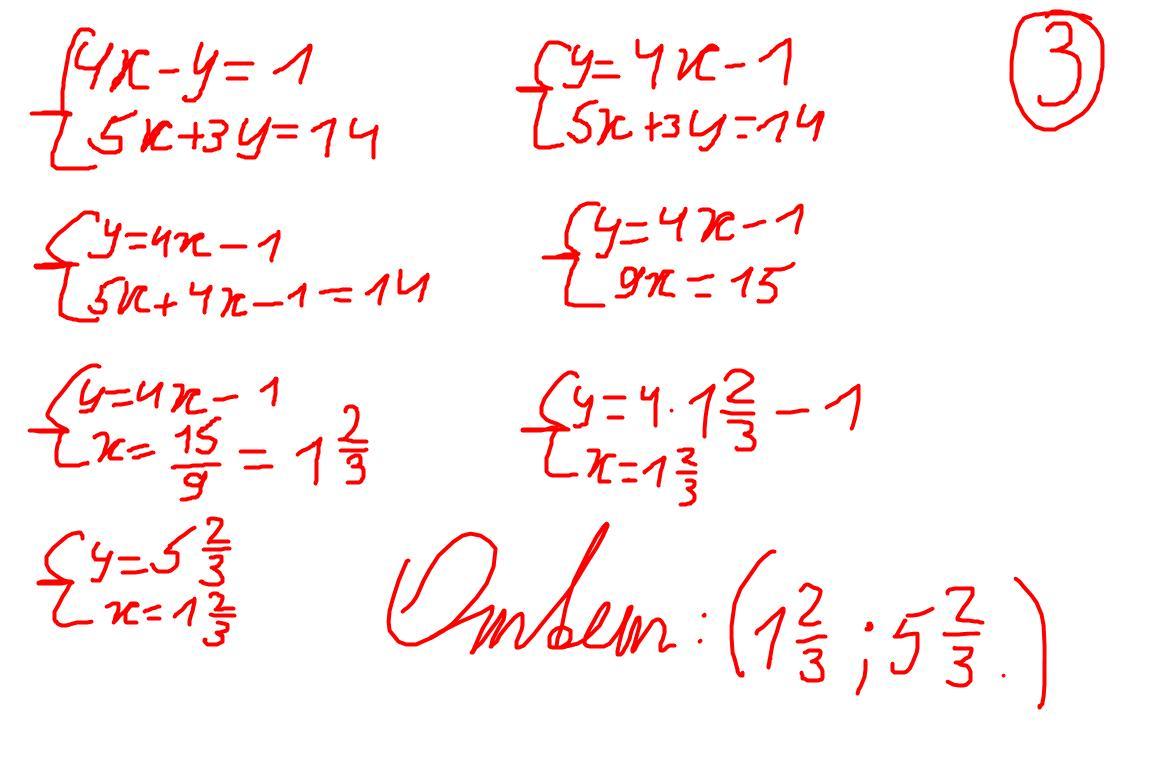 4x-y=1
5x+3y=14
y=4x-1
5x+3y=14
3
y=4x-1
5x+4x-1=14
y=4x-1
9x=15
y=4x-1
x=15/9=1 2/3
y=4·1 2/3-1
x=1 2/3
y=5 2/3
x=1 2/3
Ответ: (1 2/3; 5 2/3.)